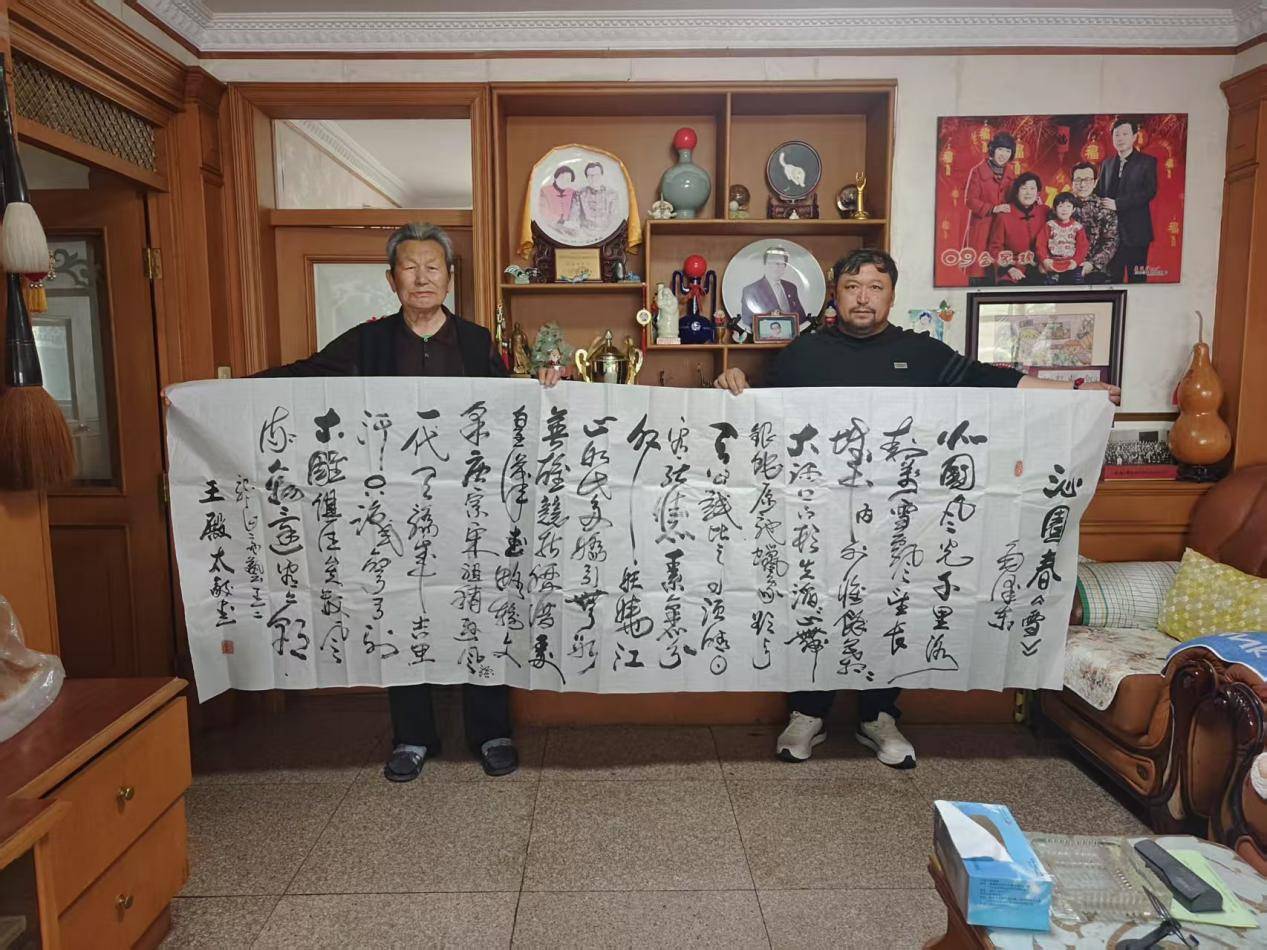 沁園春《雪》
毛澤东
北國风光千里冰
封萬里雪飘望長
城内外惟餘莽莽
大河上下顿失滔滔山舞
銀蛇原驰蠟象欲与
天公試比高须晴日
看红装素裹分
外妖嬈江
山如此多嬌引無数
英雄競折腰惜秦
皇漢武略输文
采唐宗宋祖稍逊风骚
一代天骄成吉思
汗只识弯弓射
大雕俱往矣数风
流人物还看今朝
王殿太敬書
09全家福